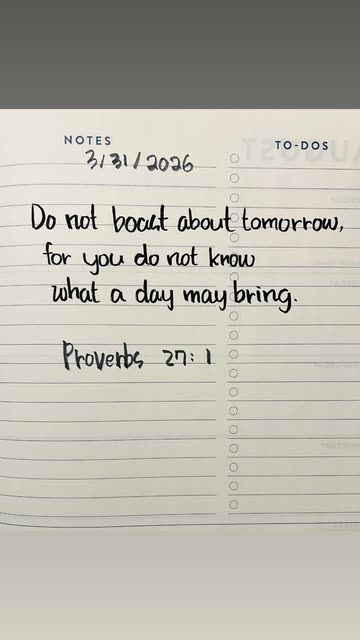 NOTES
TO-DOS
3/31/2026
Do not boast about tomorrow,
for you do not know
what a day may bring.
Proverbs 27:1